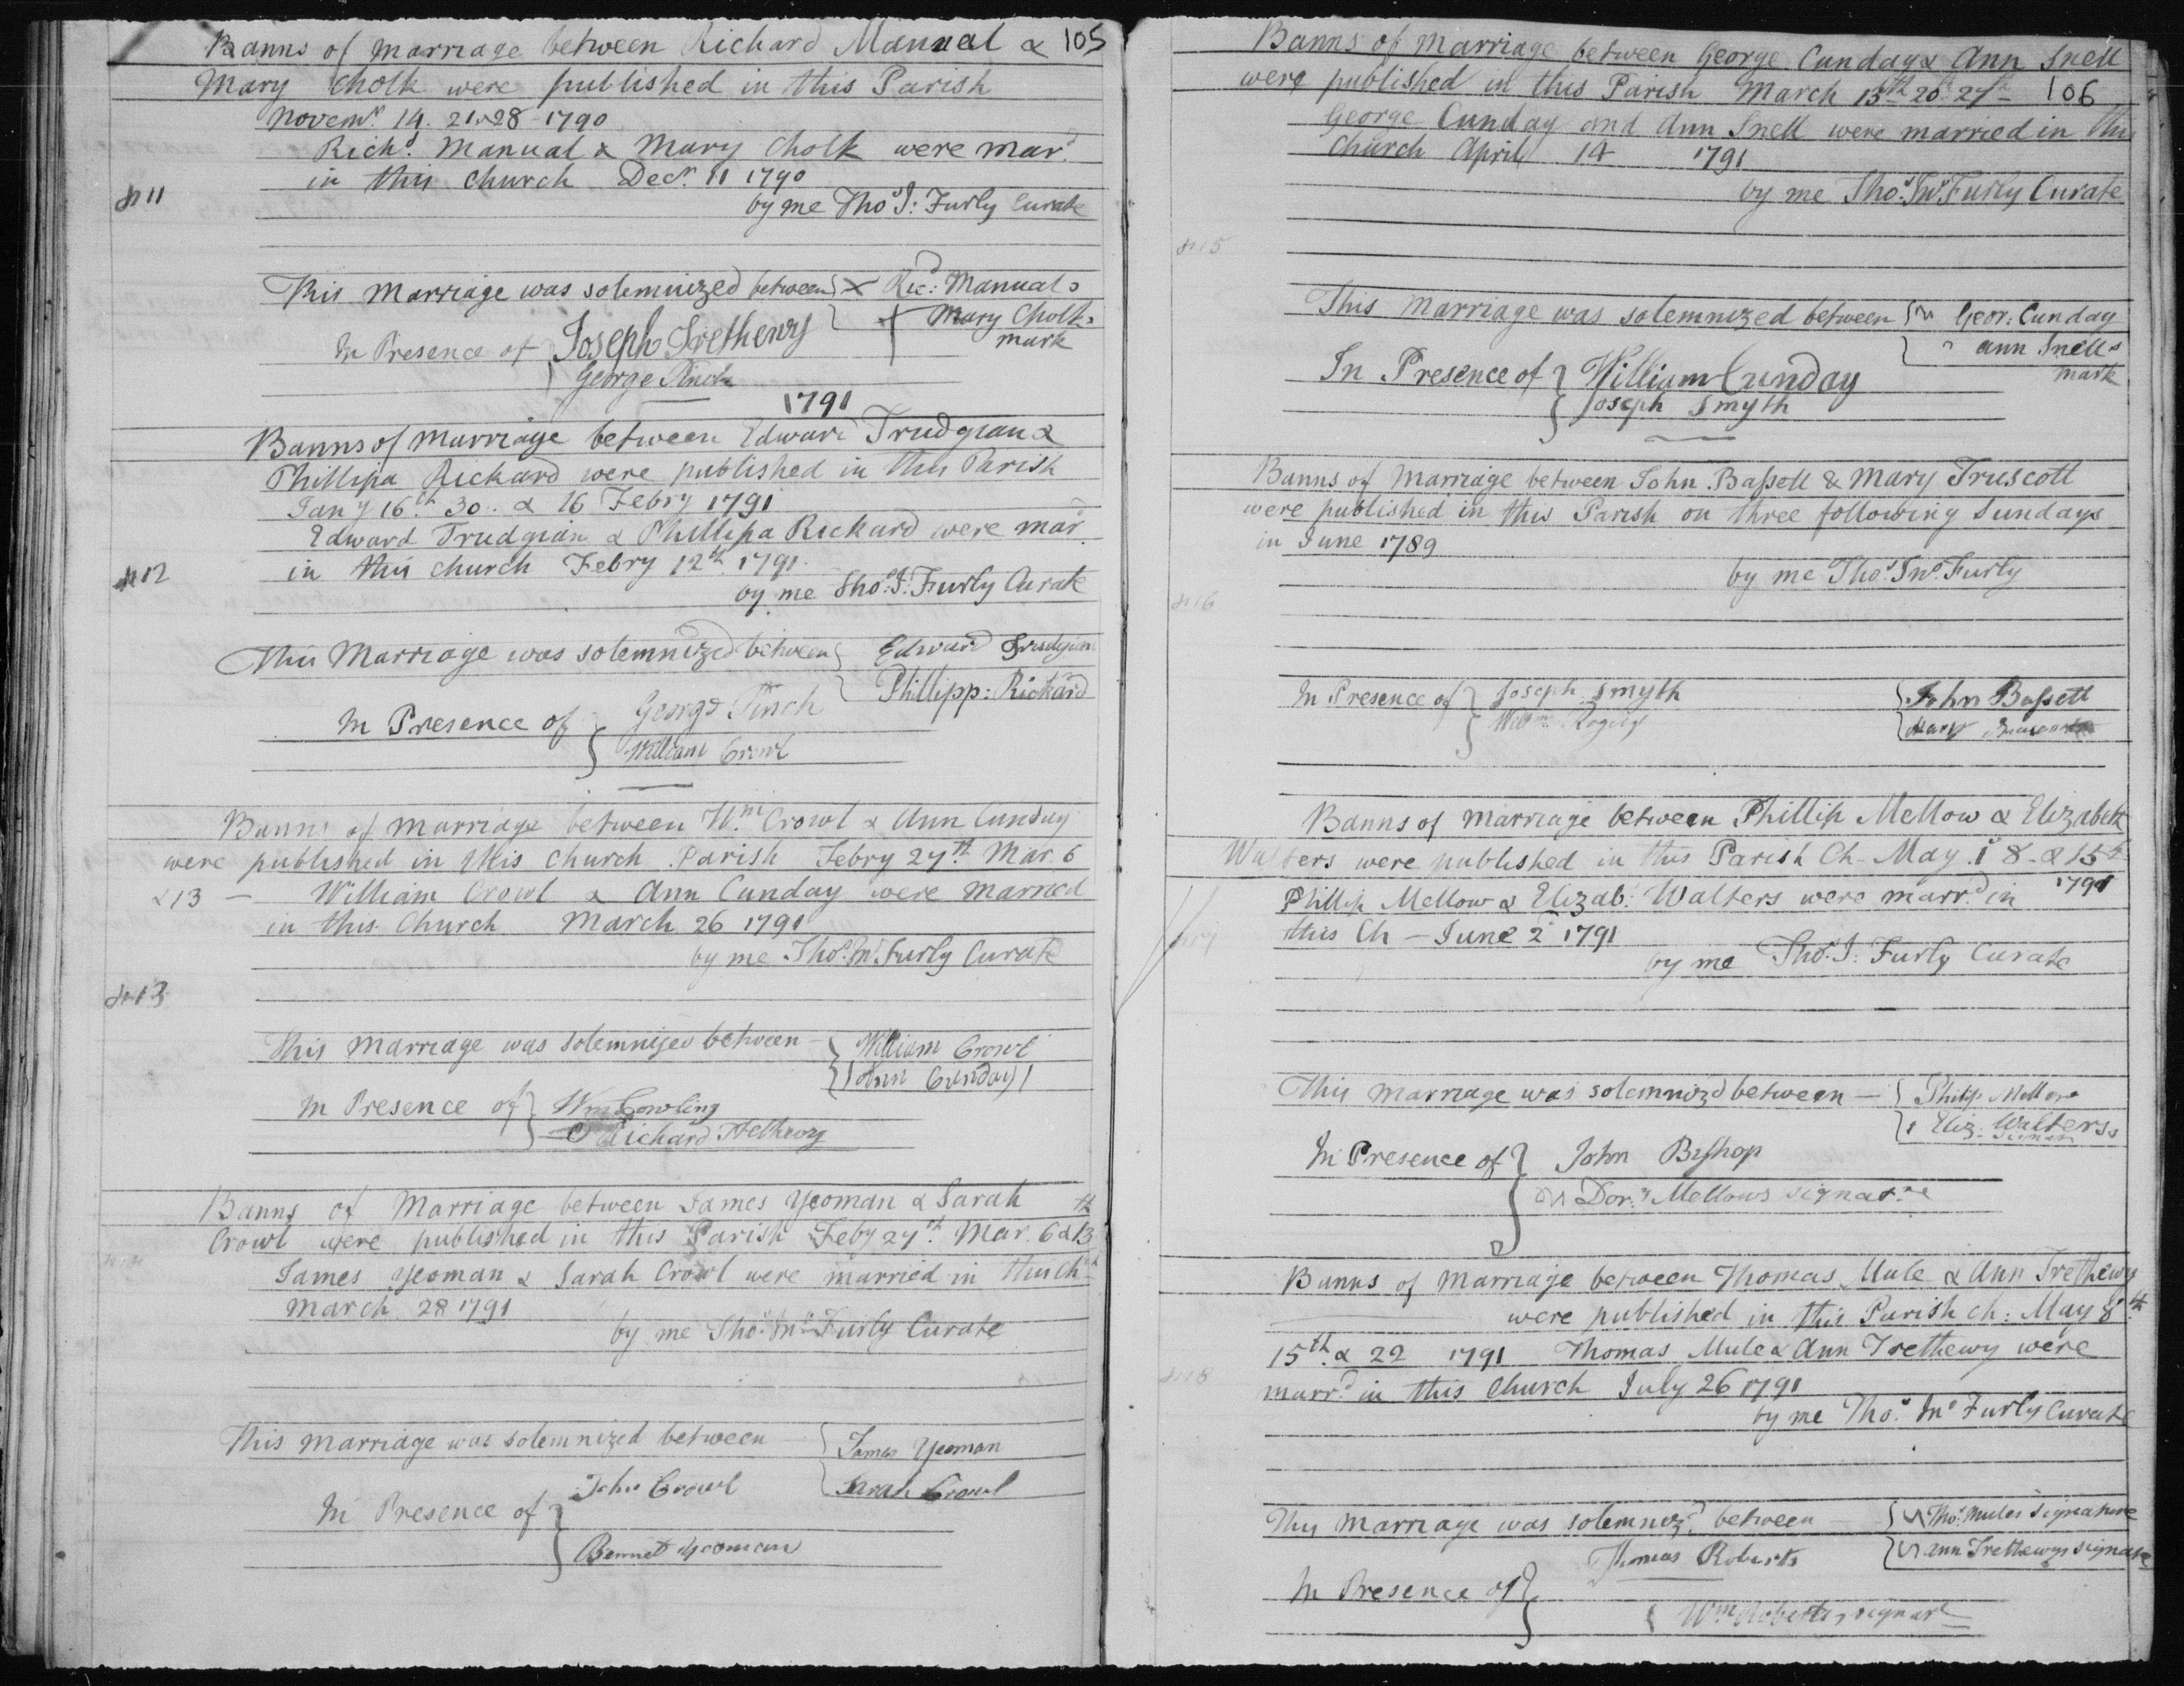 Banns of marriage between Richard Manual & 105
Mary Cholk were published in this Parish
Novemr. 14. 21. & 28 - 1790
Richd. Manual & Mary Cholk were mard.
in this church Decr. 11 1790
No 11
by me Thos. J: Furly Curate
This Marriage was solemnized between { X Ric: Manuals
{ + Mary Cholks
mark
In Presence of { Joseph Trethewy
George Pinch
1791
Banns of marriage between Edward Trudgian &
Phillipa Rickard were published in this Parish
Jany 16th 30.. & 16 Febry 1791
Edward Trudgian & Phillipa Rickard were mard.
in this church Febry 12th. 1791.
No 12
by me Thos. J: Furly Curate
This Marriage was solemnized between { Edward Trudgian
{ Phillipp: Rickard
In Presence of { George Pinch
William Crowl
Banns of marriage between Wm. Crowl & Ann Cunday
were published in this church Parish Febry 27th. Mar. 6
& 13 — William Crowl & Ann Cunday were married
in this Church March 26 1791
by me Thos. Jno. Furly Curate
No 13
This marriage was solemnized between { William Crowl
{ Ann Cunday
In Presence of } Wm Cowling
Richard Trethewy
Banns of Marriage between James Yeoman & Sarah
Crowl were published in this Parish Feby 27th. Mar. 6 & 13th
James Yeoman & Sarah Crowl were married in this Chch
March 28 1791
by me Thos. Jno. Furly Curate
This marriage was solemnized between { James Yeoman
{ Sarah Crowl
In Presence of } John Crowl
Bennet Yeoman
Banns of marriage between George Cunday & Ann Snell
were published in this Parish March 13th 20th 27th — 106
George Cunday and Ann Snell were married in this
Church April 14 1791
by me Thos. Jno. Furly Curate
No 15
This Marriage was solemnized between { Geor: Cunday
{ Ann Snells
mark
In Presence of } William Cunday
{ Joseph Smyth
Banns of marriage between John Bassett & Mary Truscott
were published in this Parish on three following Sundays
in June 1789
by me Thos. Jno. Furly
No 16
In Presence of } Joseph Smyth { John Bassett
Willm. Rogers { Mary
Banns of marriage between Phillip Mellow & Elizabeth
Walters were published in this Parish Ch- May 1st 8- & 15th
1791
Phillip Mellow & Elizab: Walters were marrd. in
this Ch - June 2d 1791
No 17
by me Thos. J: Furly Curate
This marriage was solemnizd between — { Philip Mellow
{ Eliz. Walters's
signat
In Presence of } John Bishop
Dory. Mellows signature
Banns of marriage between Thomas Mule & Ann Trethewy
were published in this Parish ch: May 8th.
15th. & 22 1791 Thomas Mule & Ann Trethewy were
No 18
marrd. in this Church July 26 1791
by me Thos. Jno. Furly Curate
This marriage was solemnizd. between — { Thos. Mules signature
{ Ann Trethewys signate
In Presence of } Thomas Roberts
{ Wm. Roberts's signat